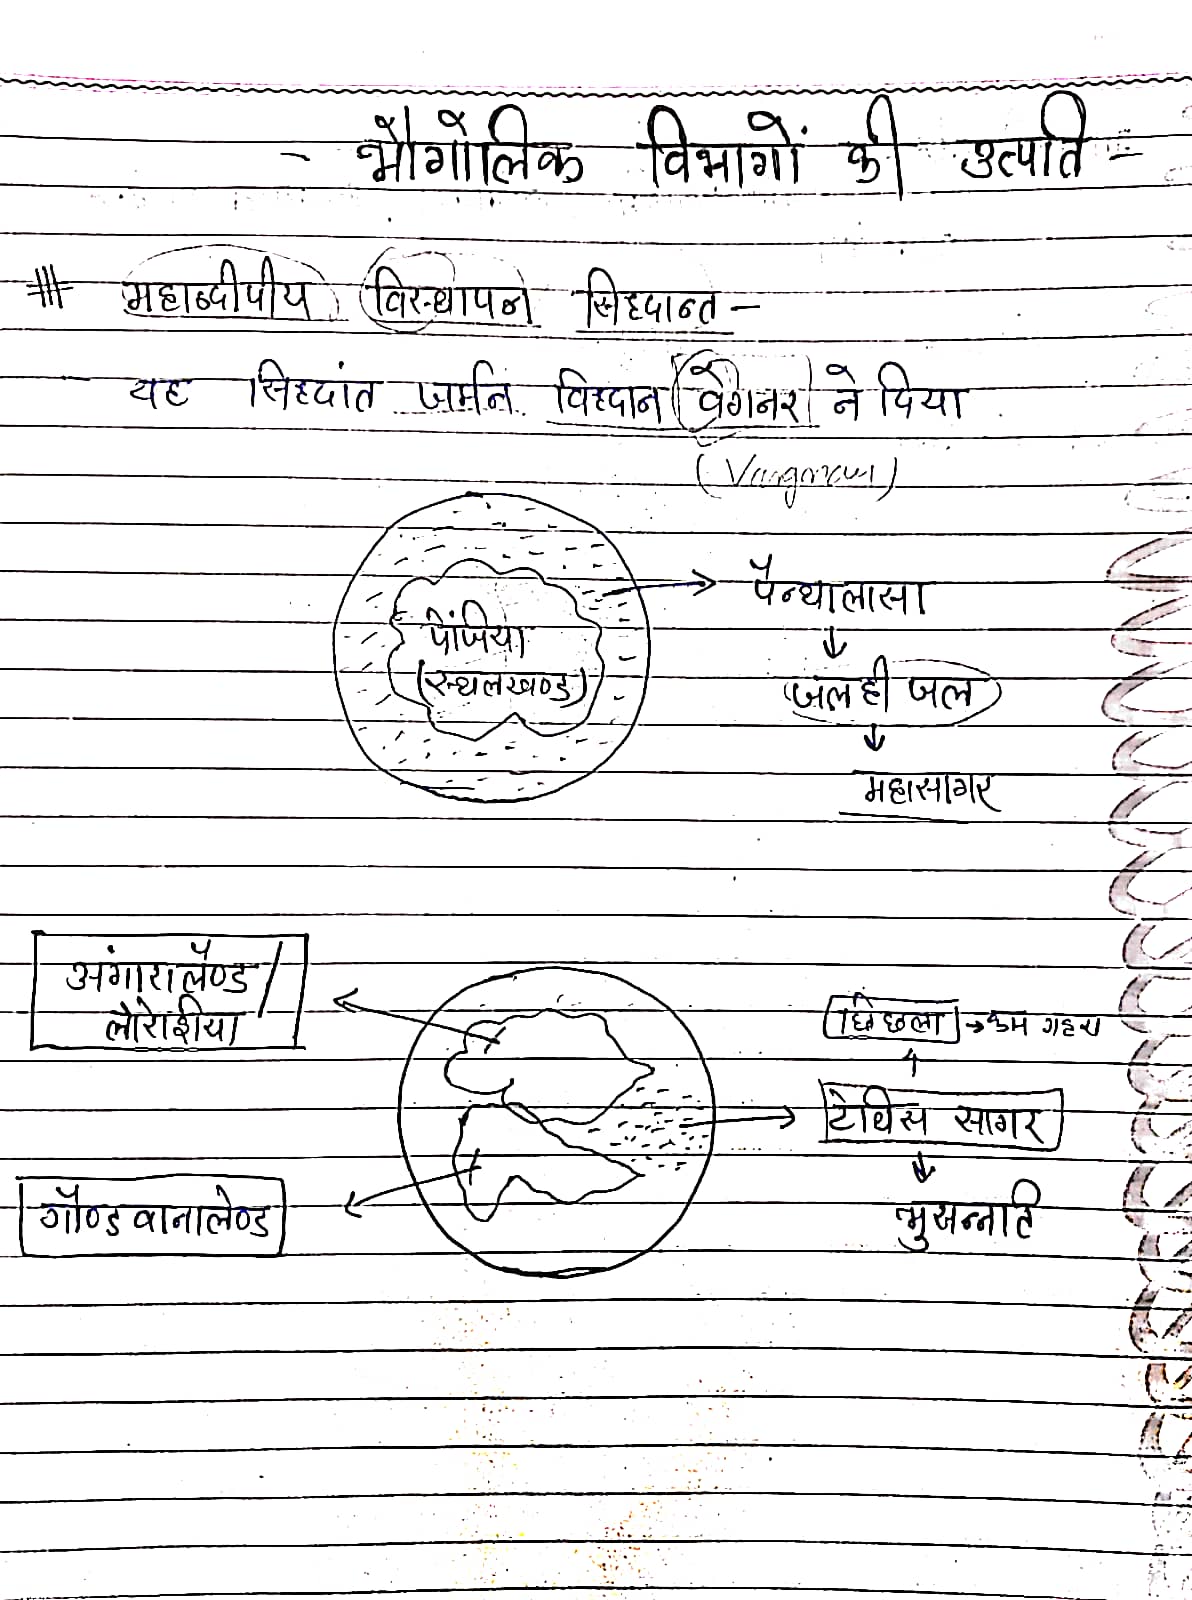 - भौगोलिक विभागों की उत्पति -
महाद्वीपीय विस्थापन सिद्दान्त -
यह सिद्दांत जर्मन विद्दान वेगनर ने दिया
पैन्थालासा
पेंजिया
(स्थलखण्ड)
↓
जल ही जल
↓
महासागर
अंगारालैण्ड /
लौरेशिया
छिछला → कम गहरा
↑
टेथिस सागर
↓
भुसन्नति
गौण्डवानालेण्ड